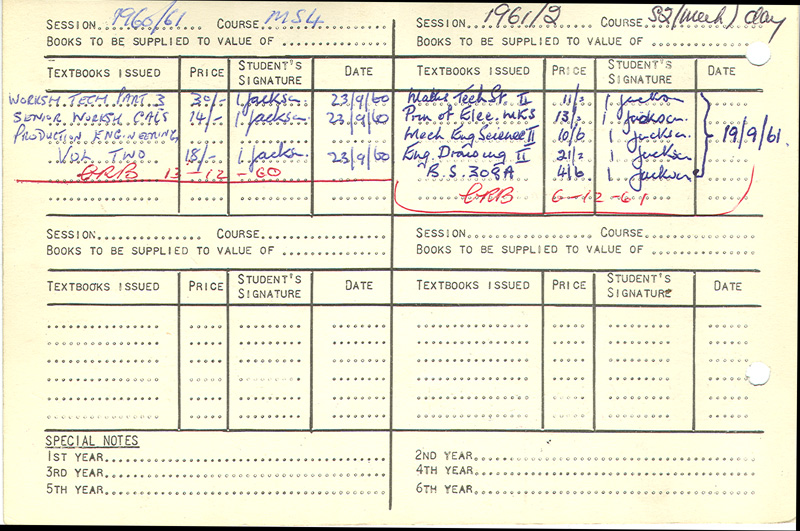 SESSION 1960/61 COURSE MS4
BOOKS TO BE SUPPLIED TO VALUE OF
TEXTBOOKS ISSUED PRICE STUDENT'S SIGNATURE DATE
WORKSH. TECH. PART. 3 30/- I. Jackson. 23/9/60
SENIOR WORKSH. CALS 14/- I. Jackson. 23/9/60
PRODUCTION ENGINEERING
VOL TWO 18/- I. Jackson. 23/9/60
GRB 13-12-60
SESSION 1961/2 COURSE S2 (Mech) day
BOOKS TO BE SUPPLIED TO VALUE OF
TEXTBOOKS ISSUED PRICE STUDENT'S SIGNATURE DATE
Maths. Tech St. II 11/- I. Jackson
Prin of Elec. MKS 13/- I. Jackson.
Mech Eng Science II 10/6 I. Jackson. 19/9/61.
Eng. Drawing II 21/- I. Jackson
B.S. 308A 4/6 I. Jackson
GRB 6-12-61
SESSION COURSE
BOOKS TO BE SUPPLIED TO VALUE OF
TEXTBOOKS ISSUED PRICE STUDENT'S SIGNATURE DATE
SESSION COURSE
BOOKS TO BE SUPPLIED TO VALUE OF
TEXTBOOKS ISSUED PRICE STUDENT'S SIGNATURE DATE
SPECIAL NOTES
1ST YEAR 2ND YEAR
3RD YEAR 4TH YEAR
5TH YEAR 6TH YEAR